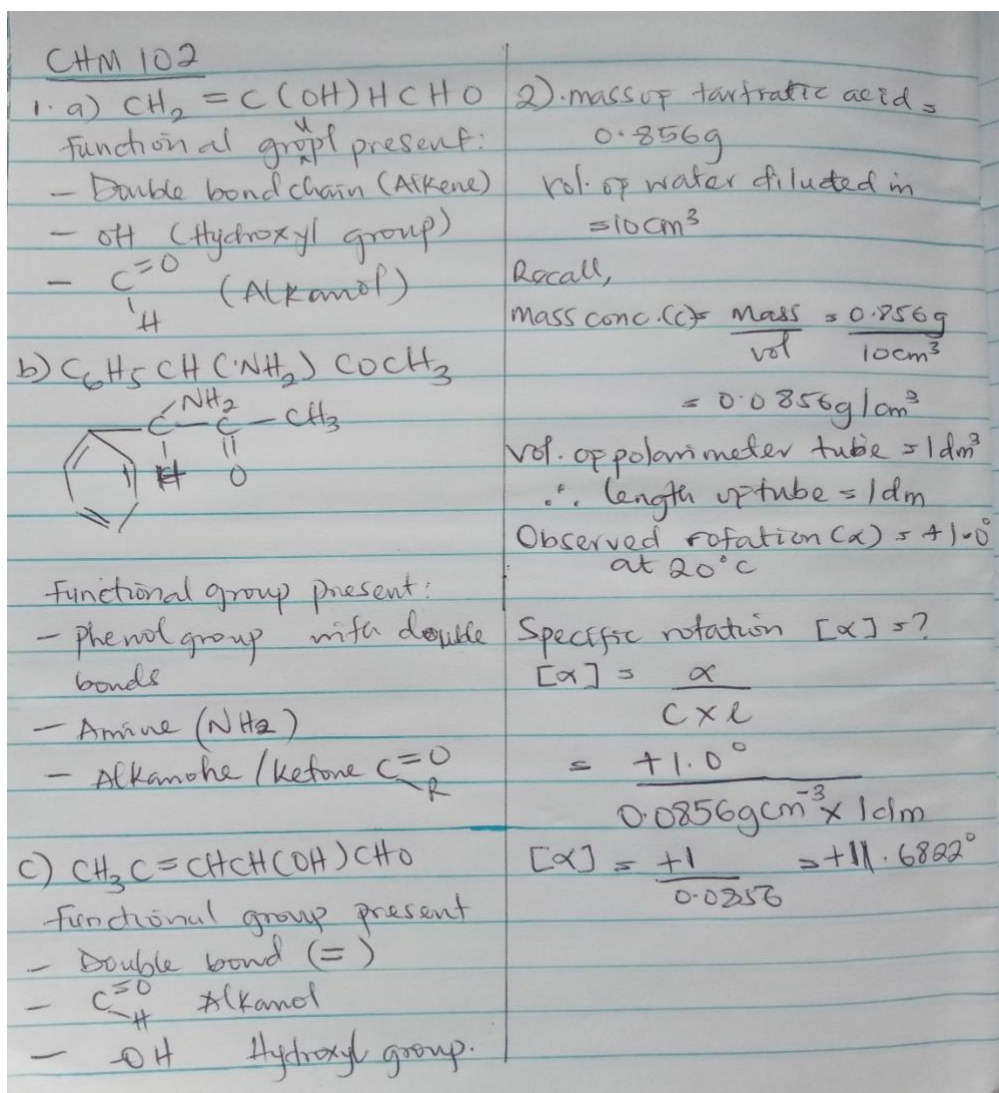 CHM 102
1. a) CH2 = C(OH)HCHO
functional group present:
- Double bond chain (Alkene)
- OH (Hydroxyl group)
- C=O (Alkanol)
H
b) C6H5CH(NH2)COCH3
NH2
C - C - CH3
H O
Functional group present:
- phenol group with double
bonds
- Amine (NH2)
- Alkanone / ketone C=O
R
c) CH3C=CHCH(OH)CHO
Functional group present
- Double bond (=)
- C=O Alkanol
H
- -OH Hydroxyl group.
2). mass of tartratic acid =
0.856g
vol. of water diluted in
=10cm³
Recall,
mass conc.(c)= Mass = 0.856g
vol 10cm³
= 0.0856g/cm³
Vol. of polarimeter tube = 1dm³
∴ length of tube = 1dm
Observed rotation (α) = +1.0°
at 20°C
Specific rotation [α] =?
[α] = α
C x l
= +1.0°
0.0856gcm⁻³ x 1dm
[α] = +1 = +11.6822°
0.0856